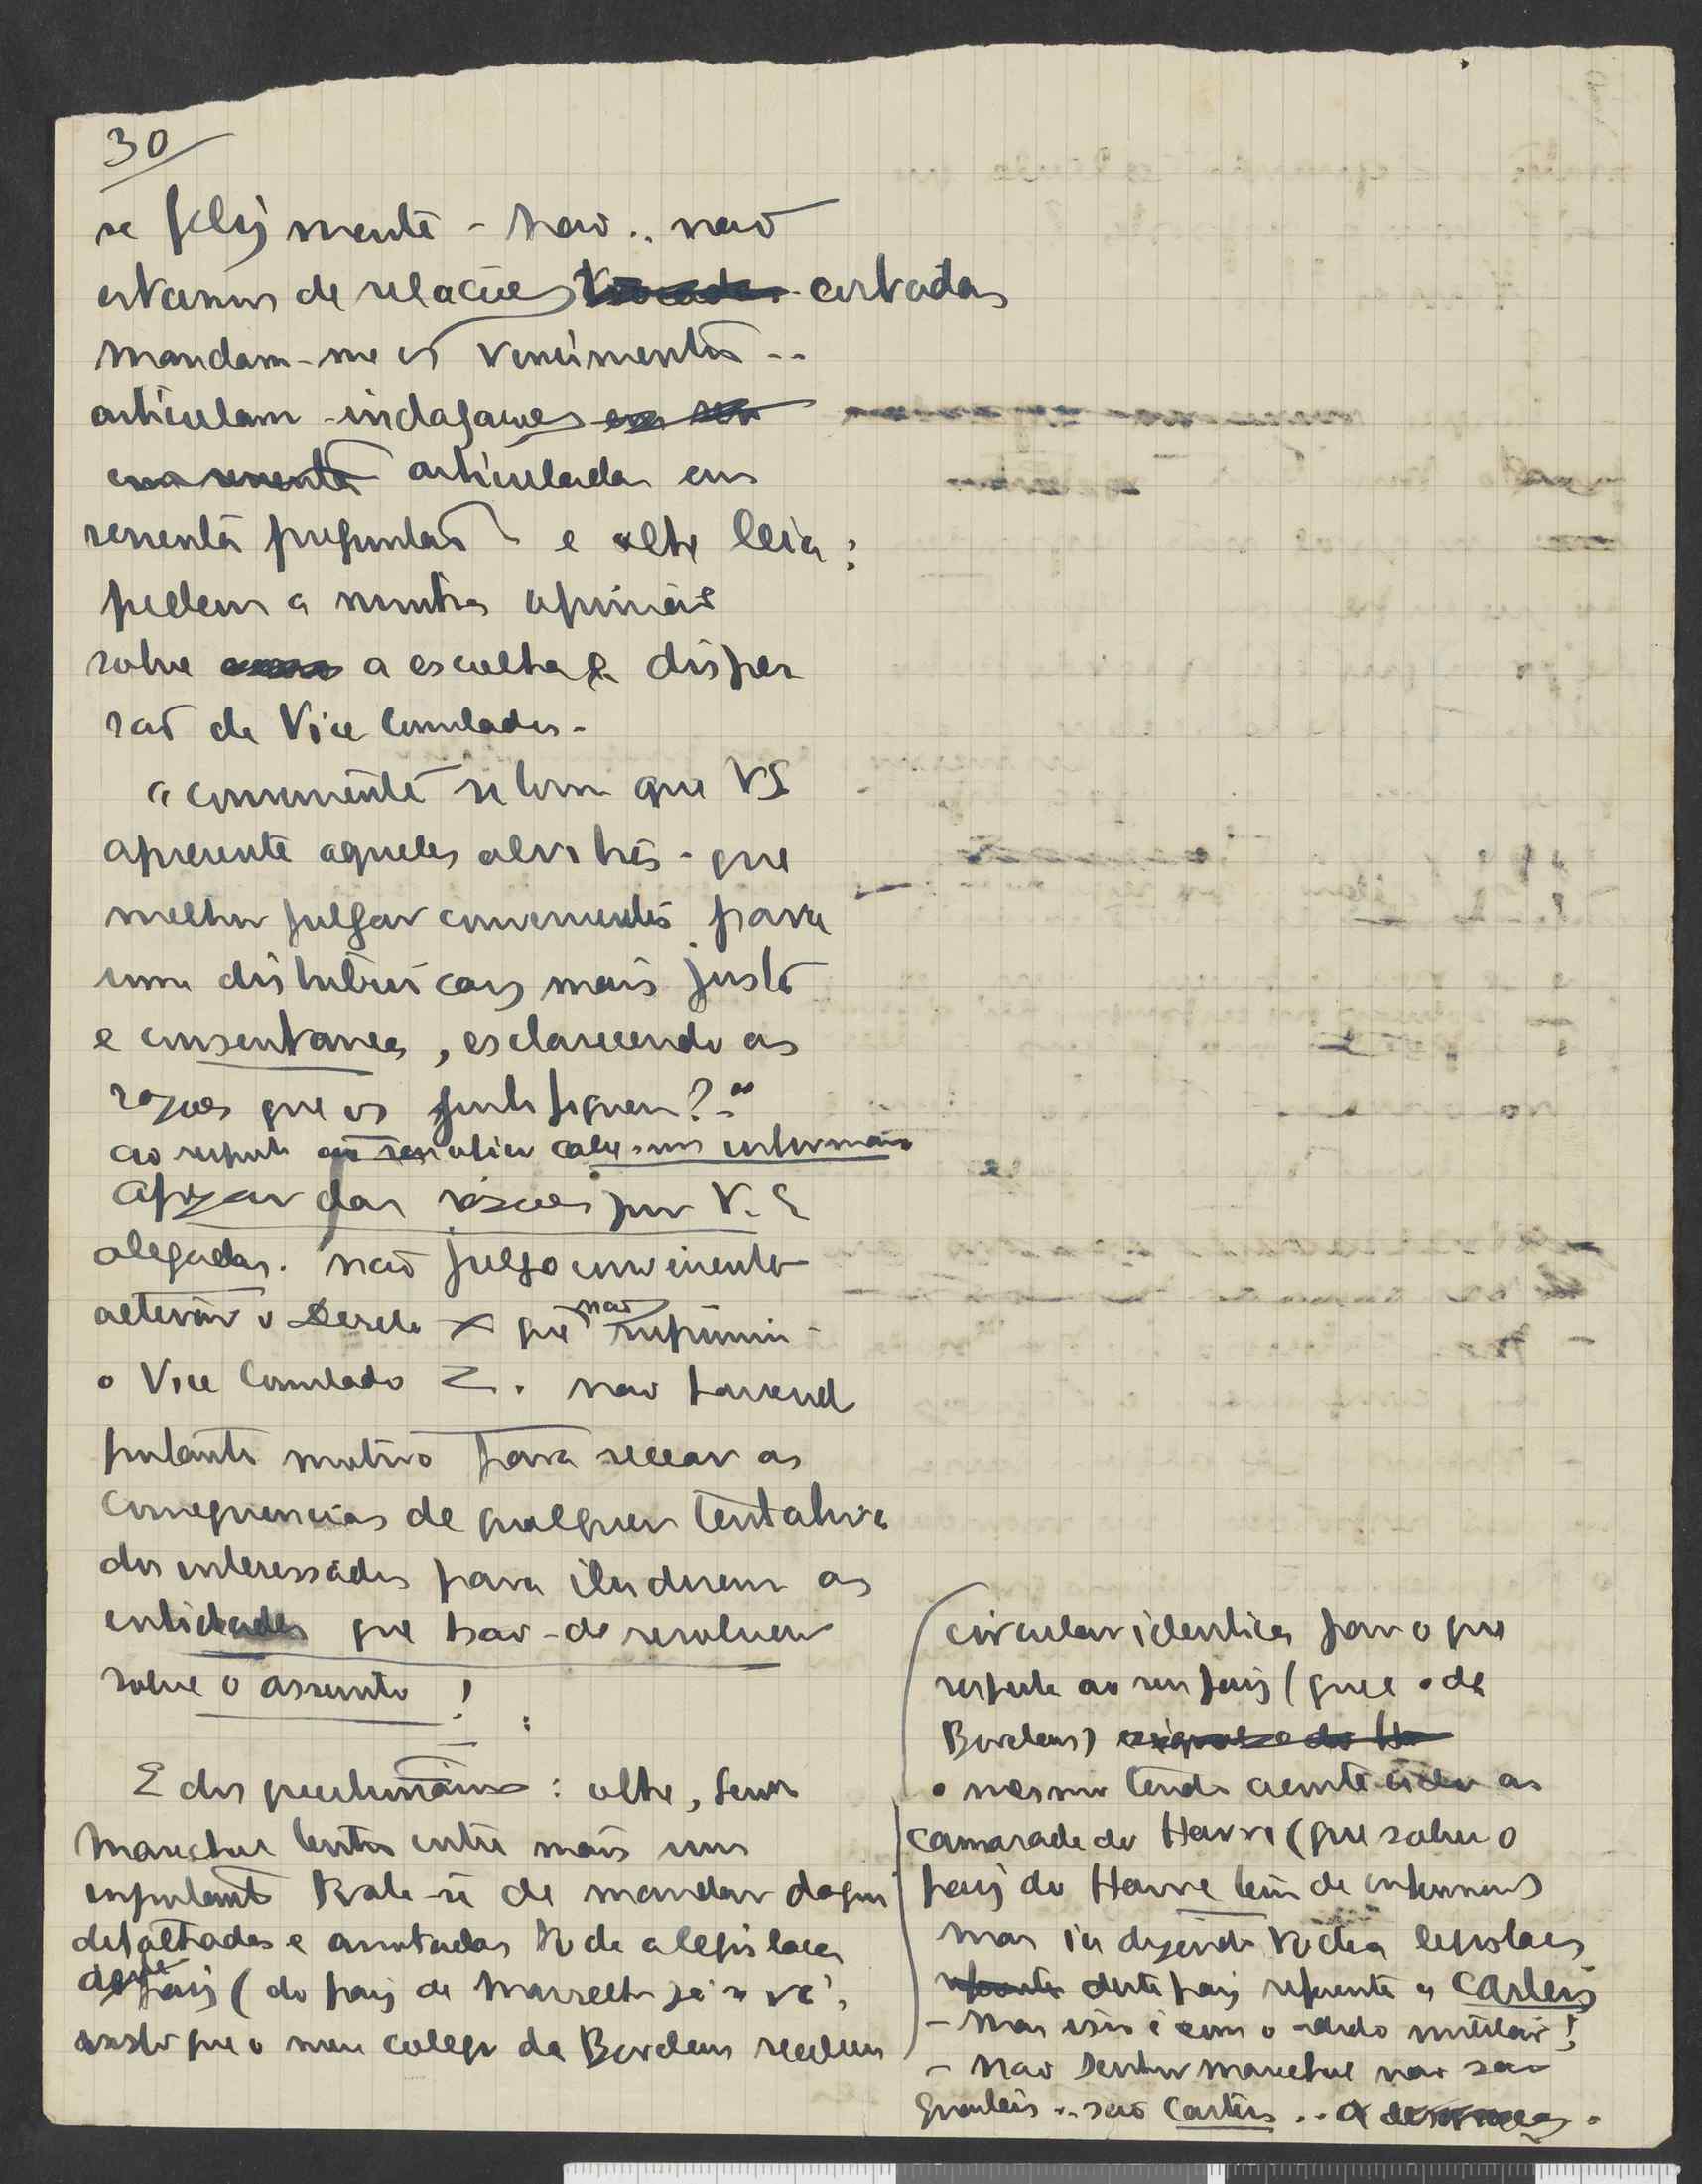 30
se felizmente - nao.. nao
estamos de relações cortadas
mandam-me os vencimentos..
articulam indagações
articulada em
sesenta preguntas e olhe leia:
pedem a minha opinião
sobre a escolha e disper
saõ de Vice Consulados.
"conveniente se torna que VS
apresente aqueles alvitres - que
melhor julgar convenientes para
uma distribuiçaõ mais justa
e consentanea, esclarecendo as
razoes que os justifiquem?"
ao respeito oficio cabe-me informar
Apezar das razoes por V. E
alegadas. naõ julgo conveniente
alterar o Decreto X que nao suprimiu
o Vice Consulado Z. nao havend
portanto motivo para recear as
consequencias de qualquer tentativa
dos interessados para iludirem as
entidades que hao-de resolver
sobre o assunto!
E dos preliminares: olhe, Senr
Manechal tenta entre mais um
importante trata-se de mandar daqui
detalhadas e anotadas toda a legislaçaõ
deste paiz (do paiz de Marselha já se vê,
visto que o meu colega de Bordeus recebeu
circular identica par o que
respeita ao seu paiz (que e o de
Bordeus)
o mesmo tendo acontecido ao
camarada do Havre (que sobre o
paiz do Havre tem de informar)
mas ia dizendo toda a legislaçaõ
deste paiz referente a Carteis
- Mas isso é com o adido militar!
- Naõ Senhor Manechal nao sao
quarteis.. saõ Carteis..